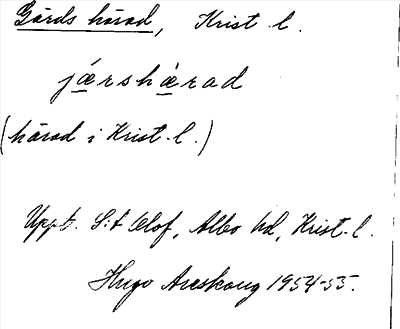 Gärds härad, Krist. l.
jǽrshæ̀rad
(härad i Krist. l.)
Uppt. S:t Olof, Albo hd, Krist. l.
Hugo Areskoug 1954-55.